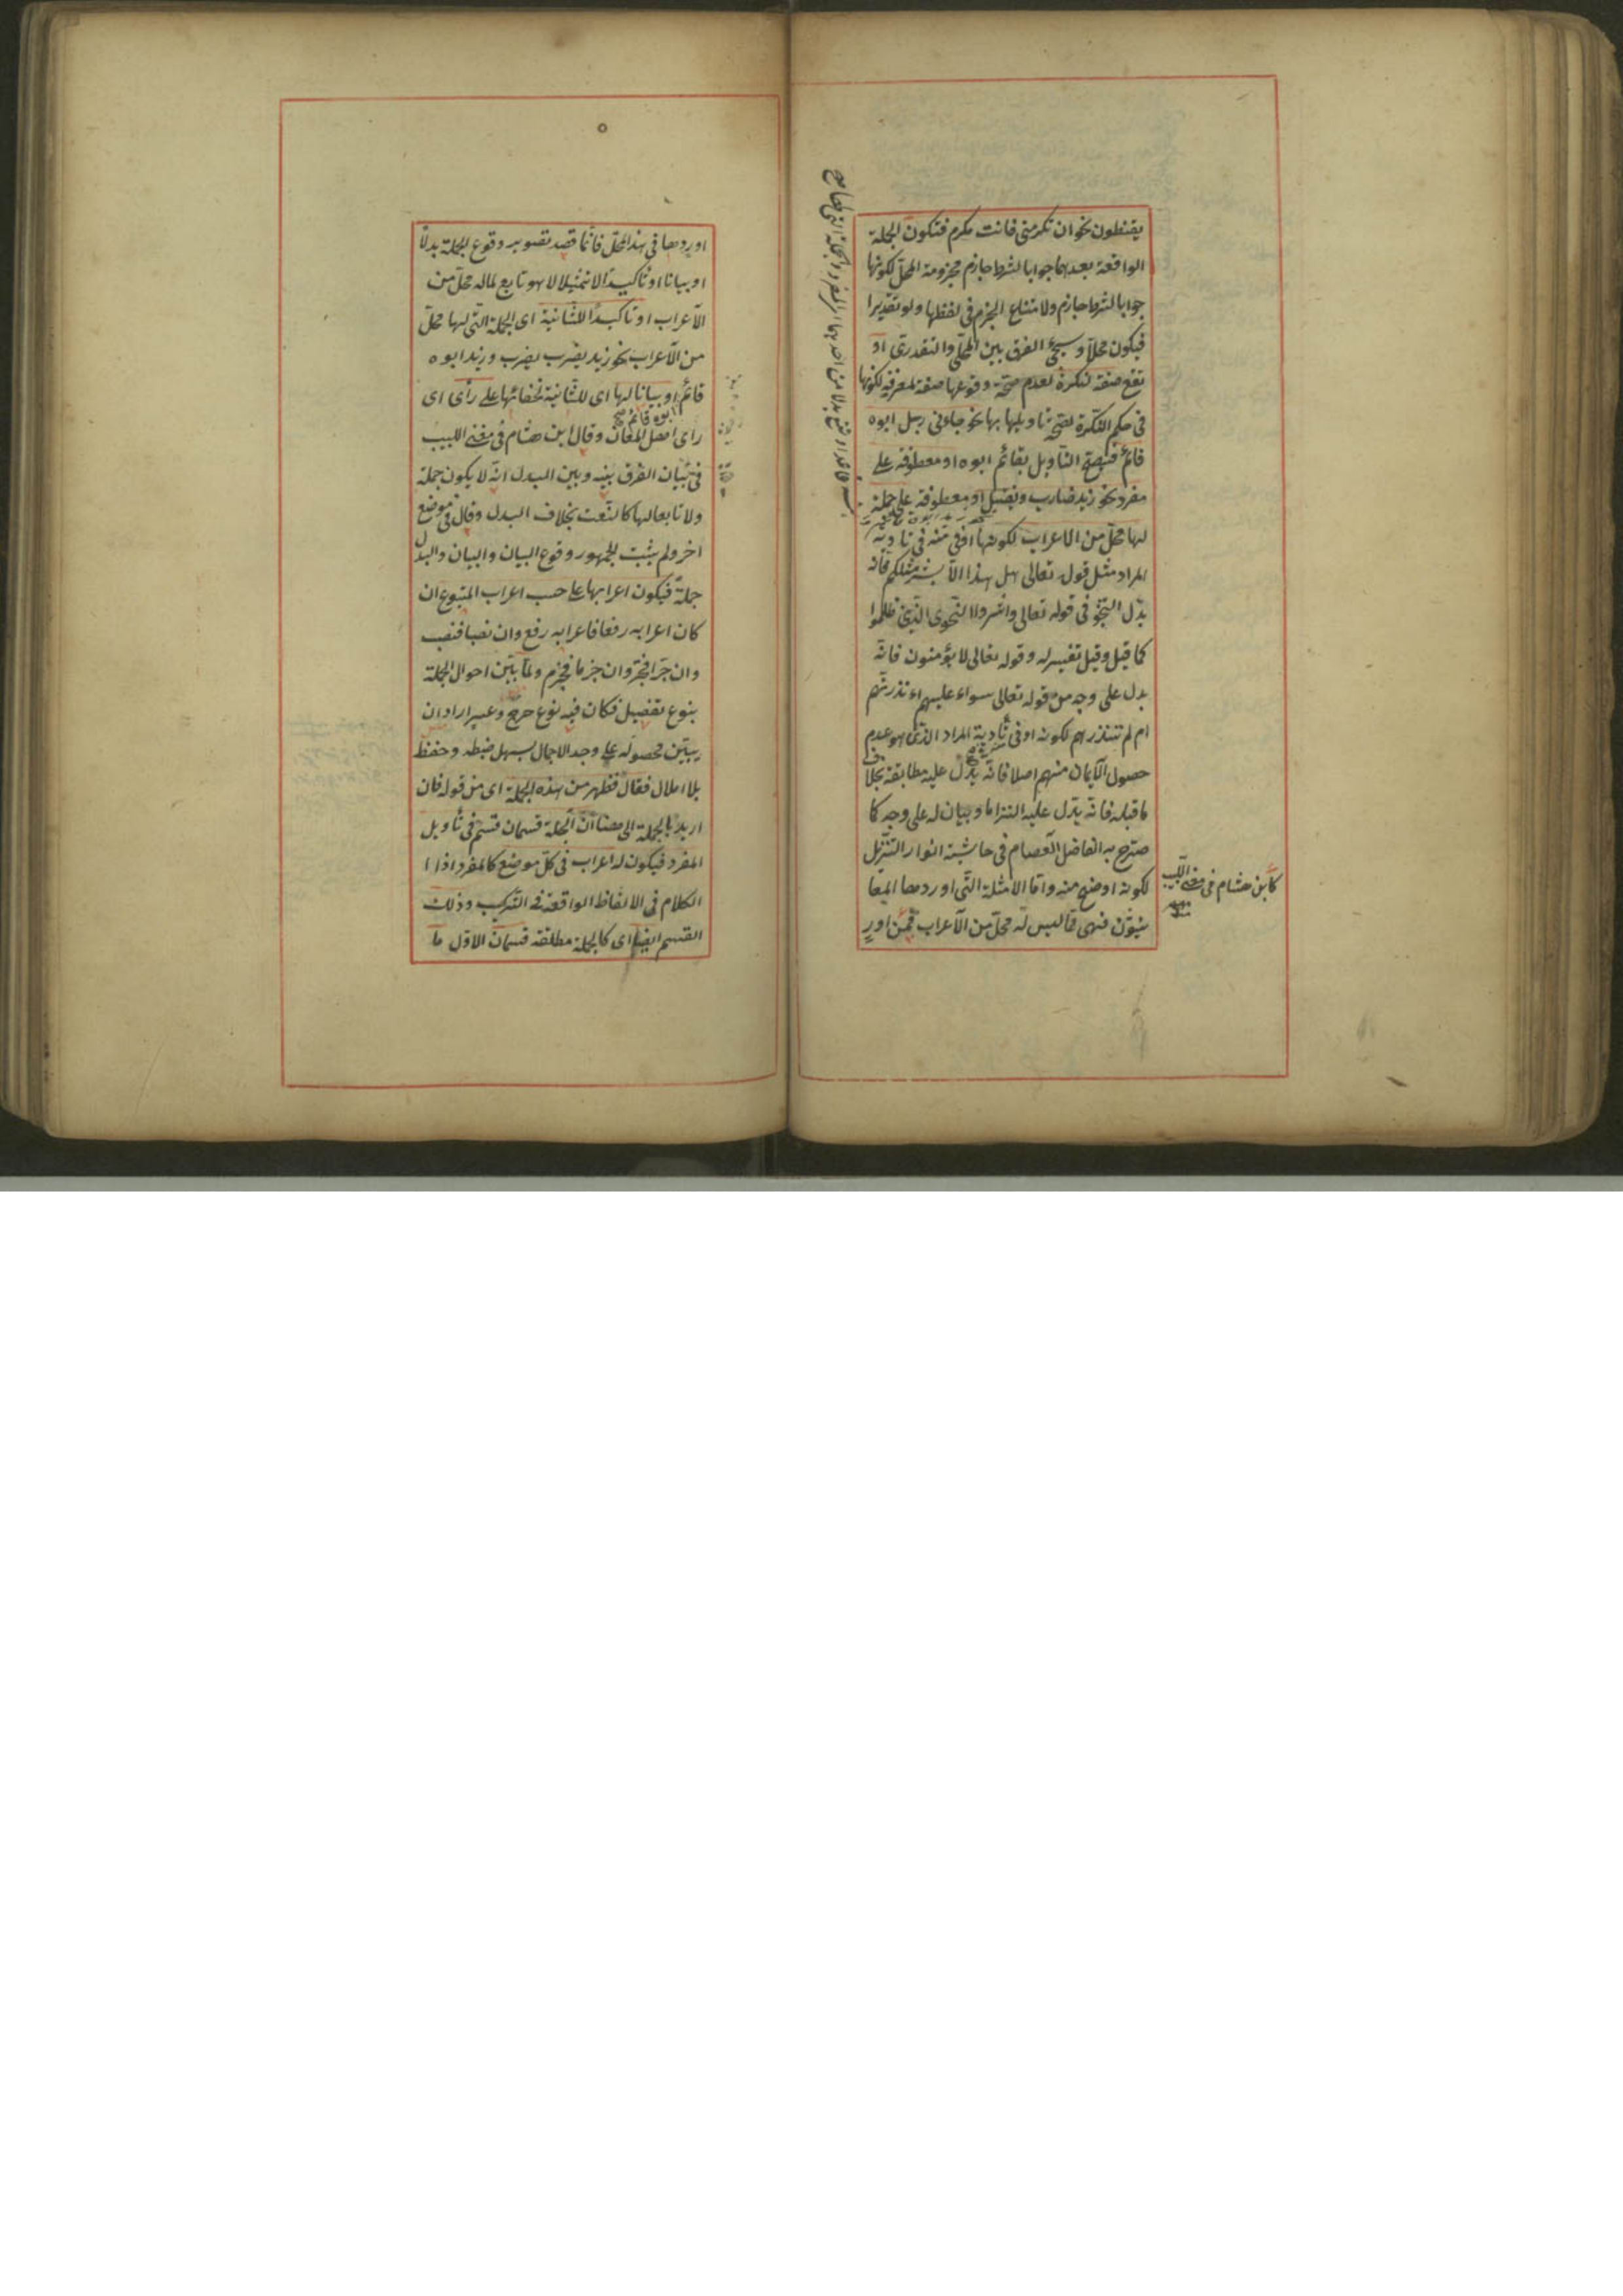 يقنطون نحو ان تكرمنى فانت مكرم فتكون الجملة
الواقعة بعدهما جوابا لشرط جازم مجزومة المحل لكونها
جوابا لشرط جازم ولامتناع الجزم فى لفظها ولو تقديرا
فيكون محلا وسيجئ الفرق بين المحلى والتقديرى او
تقع صفة لنكرة لعدم صحة وقوعها صفة لمعرفة لكونها
فى حكم النكرة لصحة تاويلها بها نحو جاءنى رجل ابوه
قائم فيصح التاويل بقائم ابوه او معطوفة على
مفرد نحو زيد ضارب ويقتل او معطوفة على جملة
لها محل من الاعراب لكونها اوفى منه فى تادية
المراد مثل قوله تعالى هل هذا الا بشر مثلكم فانه
بدل النجو فى قوله تعالى واسروا النجوى الذين ظلموا
كما قيل وقيل تفسير له وقوله تعالى لا يؤمنون فانه
بدل على وجه من قوله تعالى سواء عليهم ءانذرتهم
ام لم تنذرهم لكونه اوفى تأدية المراد الذى هو عدم
حصول الايمان منهم اصلا فانه يدل عليه مطابقة بخلاف
ما قبله فانه يدل عليه التزاما وبيان له على وجه كما
صرح به الفاضل العصام فى حاشية انوار التنزيل
لكونه اوضح منه واما الامثلة التى اوردها المعا
نيون فهى مما ليس له محل من الاعراب فمن اور
كابن هشام فى مغنى اللبيب
منه
اوردها فى هذا المحل فانما قصد تصوير وقوع الجملة بدلا
او بيانا او تاكيدا لا تمثيلا لا هو تابع لماله محل من
الاعراب او تاكيدا للثانية اى الجملة التى لها محل
من الاعراب نحو زيد يضرب يضرب وزيد ابوه
قائم او بيانا لها اى للثانية لخفائها على رأى اى
ابوه قائم صح
رأى اهل المعان وقال ابن هشام فى مغنى اللبيب
فى بيان الفرق بينه وبين البدل انه لا يكون جملة
ولا تابعا لها كالنعت بخلاف البدل وقال فى موضع
اخر ولم يثبت الجمهور وقوع البيان والبيان والبدل
جملة فيكون اعرابها على حسب اعراب المتبوع ان
كان اعرابه رفعا فاعرابه رفع وان نصبا فنصب
وان جرا فجر وان جزما فجزم ولما بين احوال الجملة
بنوع تفصيل فكان فيه نوع حرج وعسر اراد ان
يبين محصوله على وجه الاجمال يسهل ضبطه وحفظ
بلا املال فقال فظهر من هذه الجملة اى من قوله فان
اريد بالجملة الى هنا ان الجملة قسمان قسم فى تأويل
المفرد فيكون له اعراب فى كل موضع كالمفرد اذا
الكلام فى الالفاظ الواقعة فى التركيب وذلك
القسم ايضا اى كالجملة مطلقة قسمان الاول ما